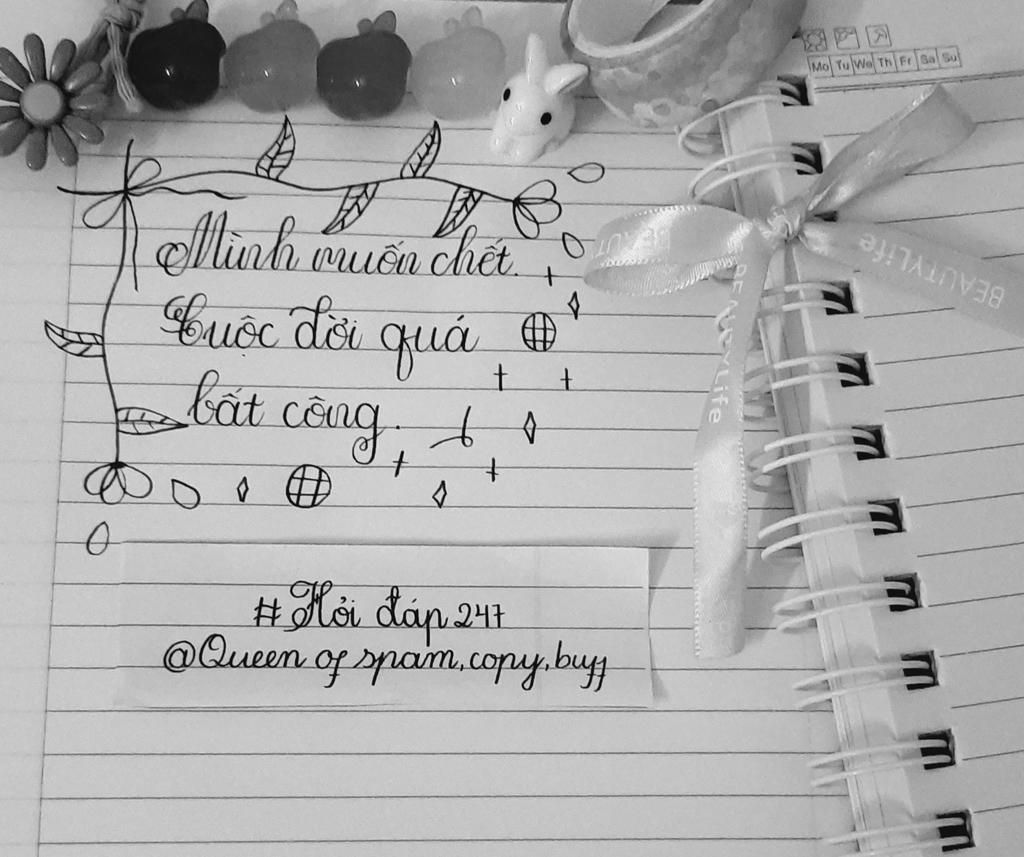 Mo Tu We Th Fr Sa Su
Mình muốn chết.
Cuộc đời quá
bất công.
BEAUTYLife
BEAUTYLife
#Hỏi đáp 247
@Queen of spam, copy, buff